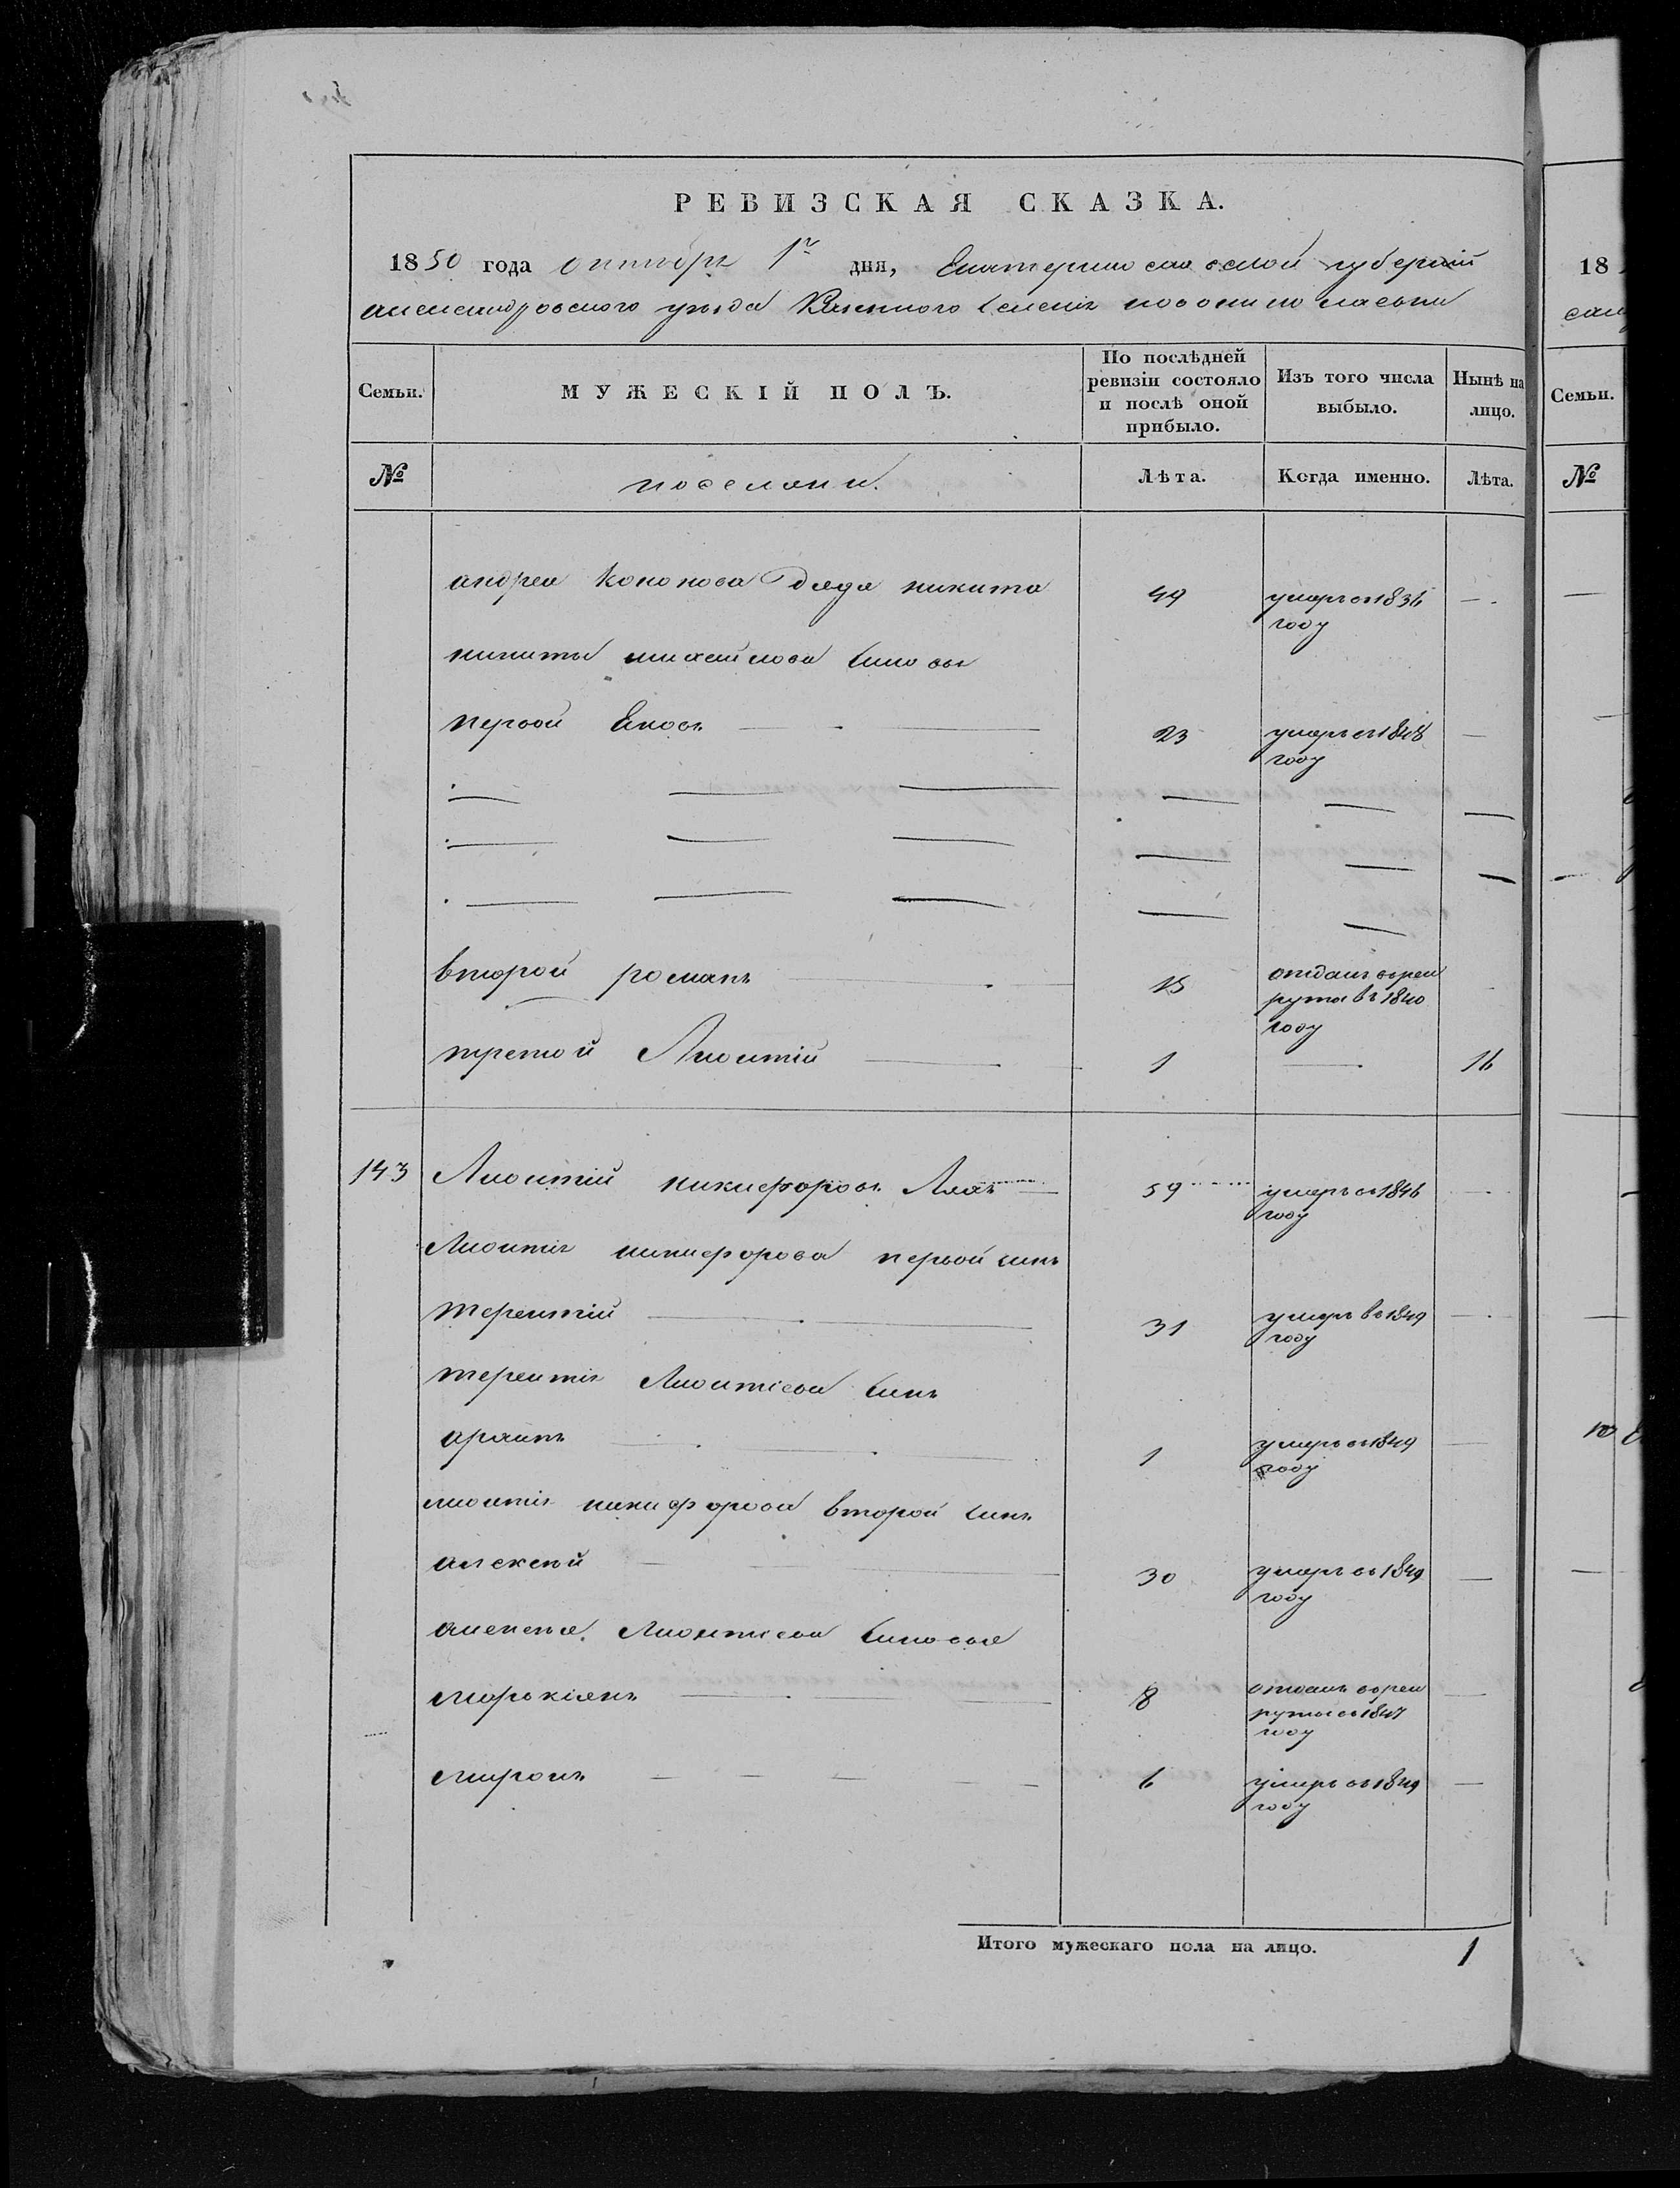 РЕВИЗСКАЯ СКАЗКА.
1850 года октября 1го дня, Екатеринославской губерній
александровского уезда Казенного Селения новониколаевки
Семьи. МУЖЕСКІЙ ПОЛЪ. По послѣдней ревизіи состояло и послѣ оной прибыло. Изъ того числа выбыло. Нынѣ на лицо.
№ поселяни. Лѣта. Когда именно. Лѣта.
андрея Кононова дядя никита 49 умеръ въ 1836 году —
никиты михайлова сыновя
первой Яковъ 23 умеръ въ 1848 году —
второй романъ 15 отданъ въ рекруты въ 1840 году
третой Леонтій 1 — 16
143 Леонтій никифоровъ Лях 59 умеръ въ 1846 году
Леонтія никифорова первой синъ
терентій 31 умеръ въ 1849 году
терентія Леонтіева синъ
1 умеръ въ 1849 году
леонтія никифорова второй синъ
алексей 30 умеръ въ 1849 году —
алексея Леонтіева синовя
маркіянъ 8 отданъ въ рекруты въ 1847 году —
миронъ 6 умеръ въ 1849 году —
Итого мужескаго пола на лицо. 1
18
Семьи.
№